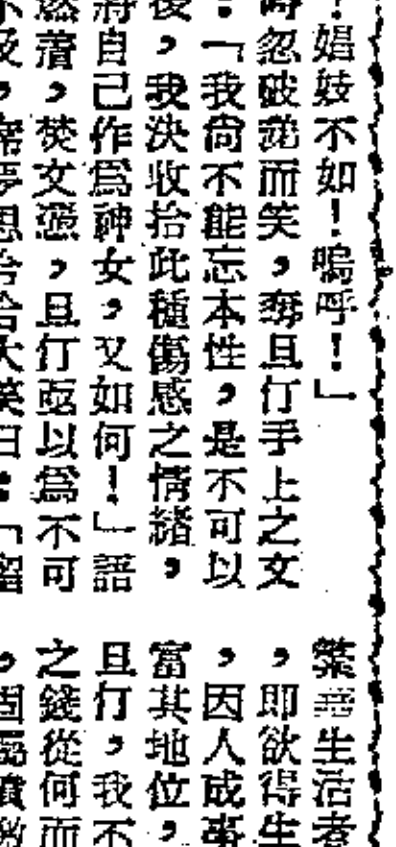 ！娼妓不如！嗚呼！」
時忽破涕而笑，奪且打手上之文
：「我尙不能忘本性，是不可以
後，我決收拾此種傷感之情緖，
將自己作爲神女，又如何！」語
然着，焚文憑，且打亟以爲不可
大笑曰：「留
繁華生活者
，即欲得生
，因人成事
富其地位，
且打，我不
之錢從何而